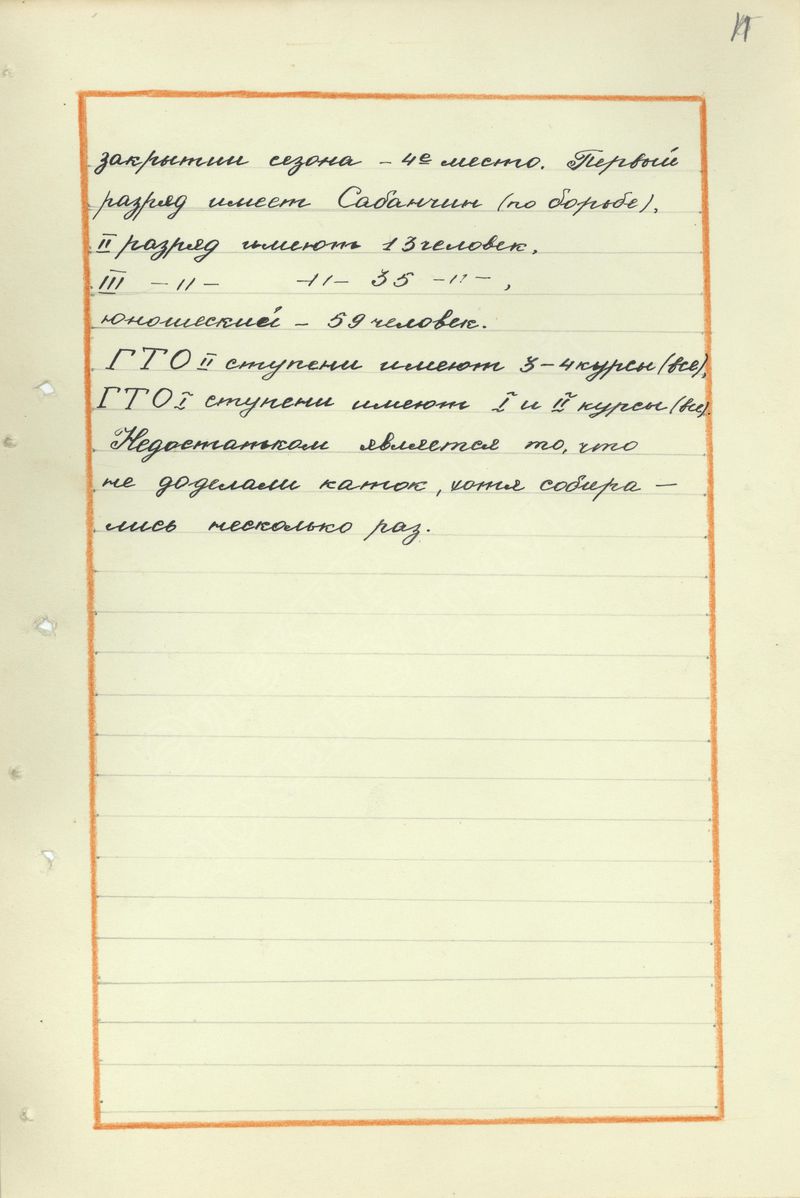 закрытии сезона – 4е место. Первый
разряд имеет Сабанчин (по борьбе),
II разряд имеют 13 человек,
III –II– –II– 35 –II–,
юношеский – 59 человек.
ГТО II ступени имеют 3–4 курсы (все),
ГТО I ступени имеют I и II курсы (все).
Недостатком является то, что
не доделали каток, хотя собира–
лись несколько раз.